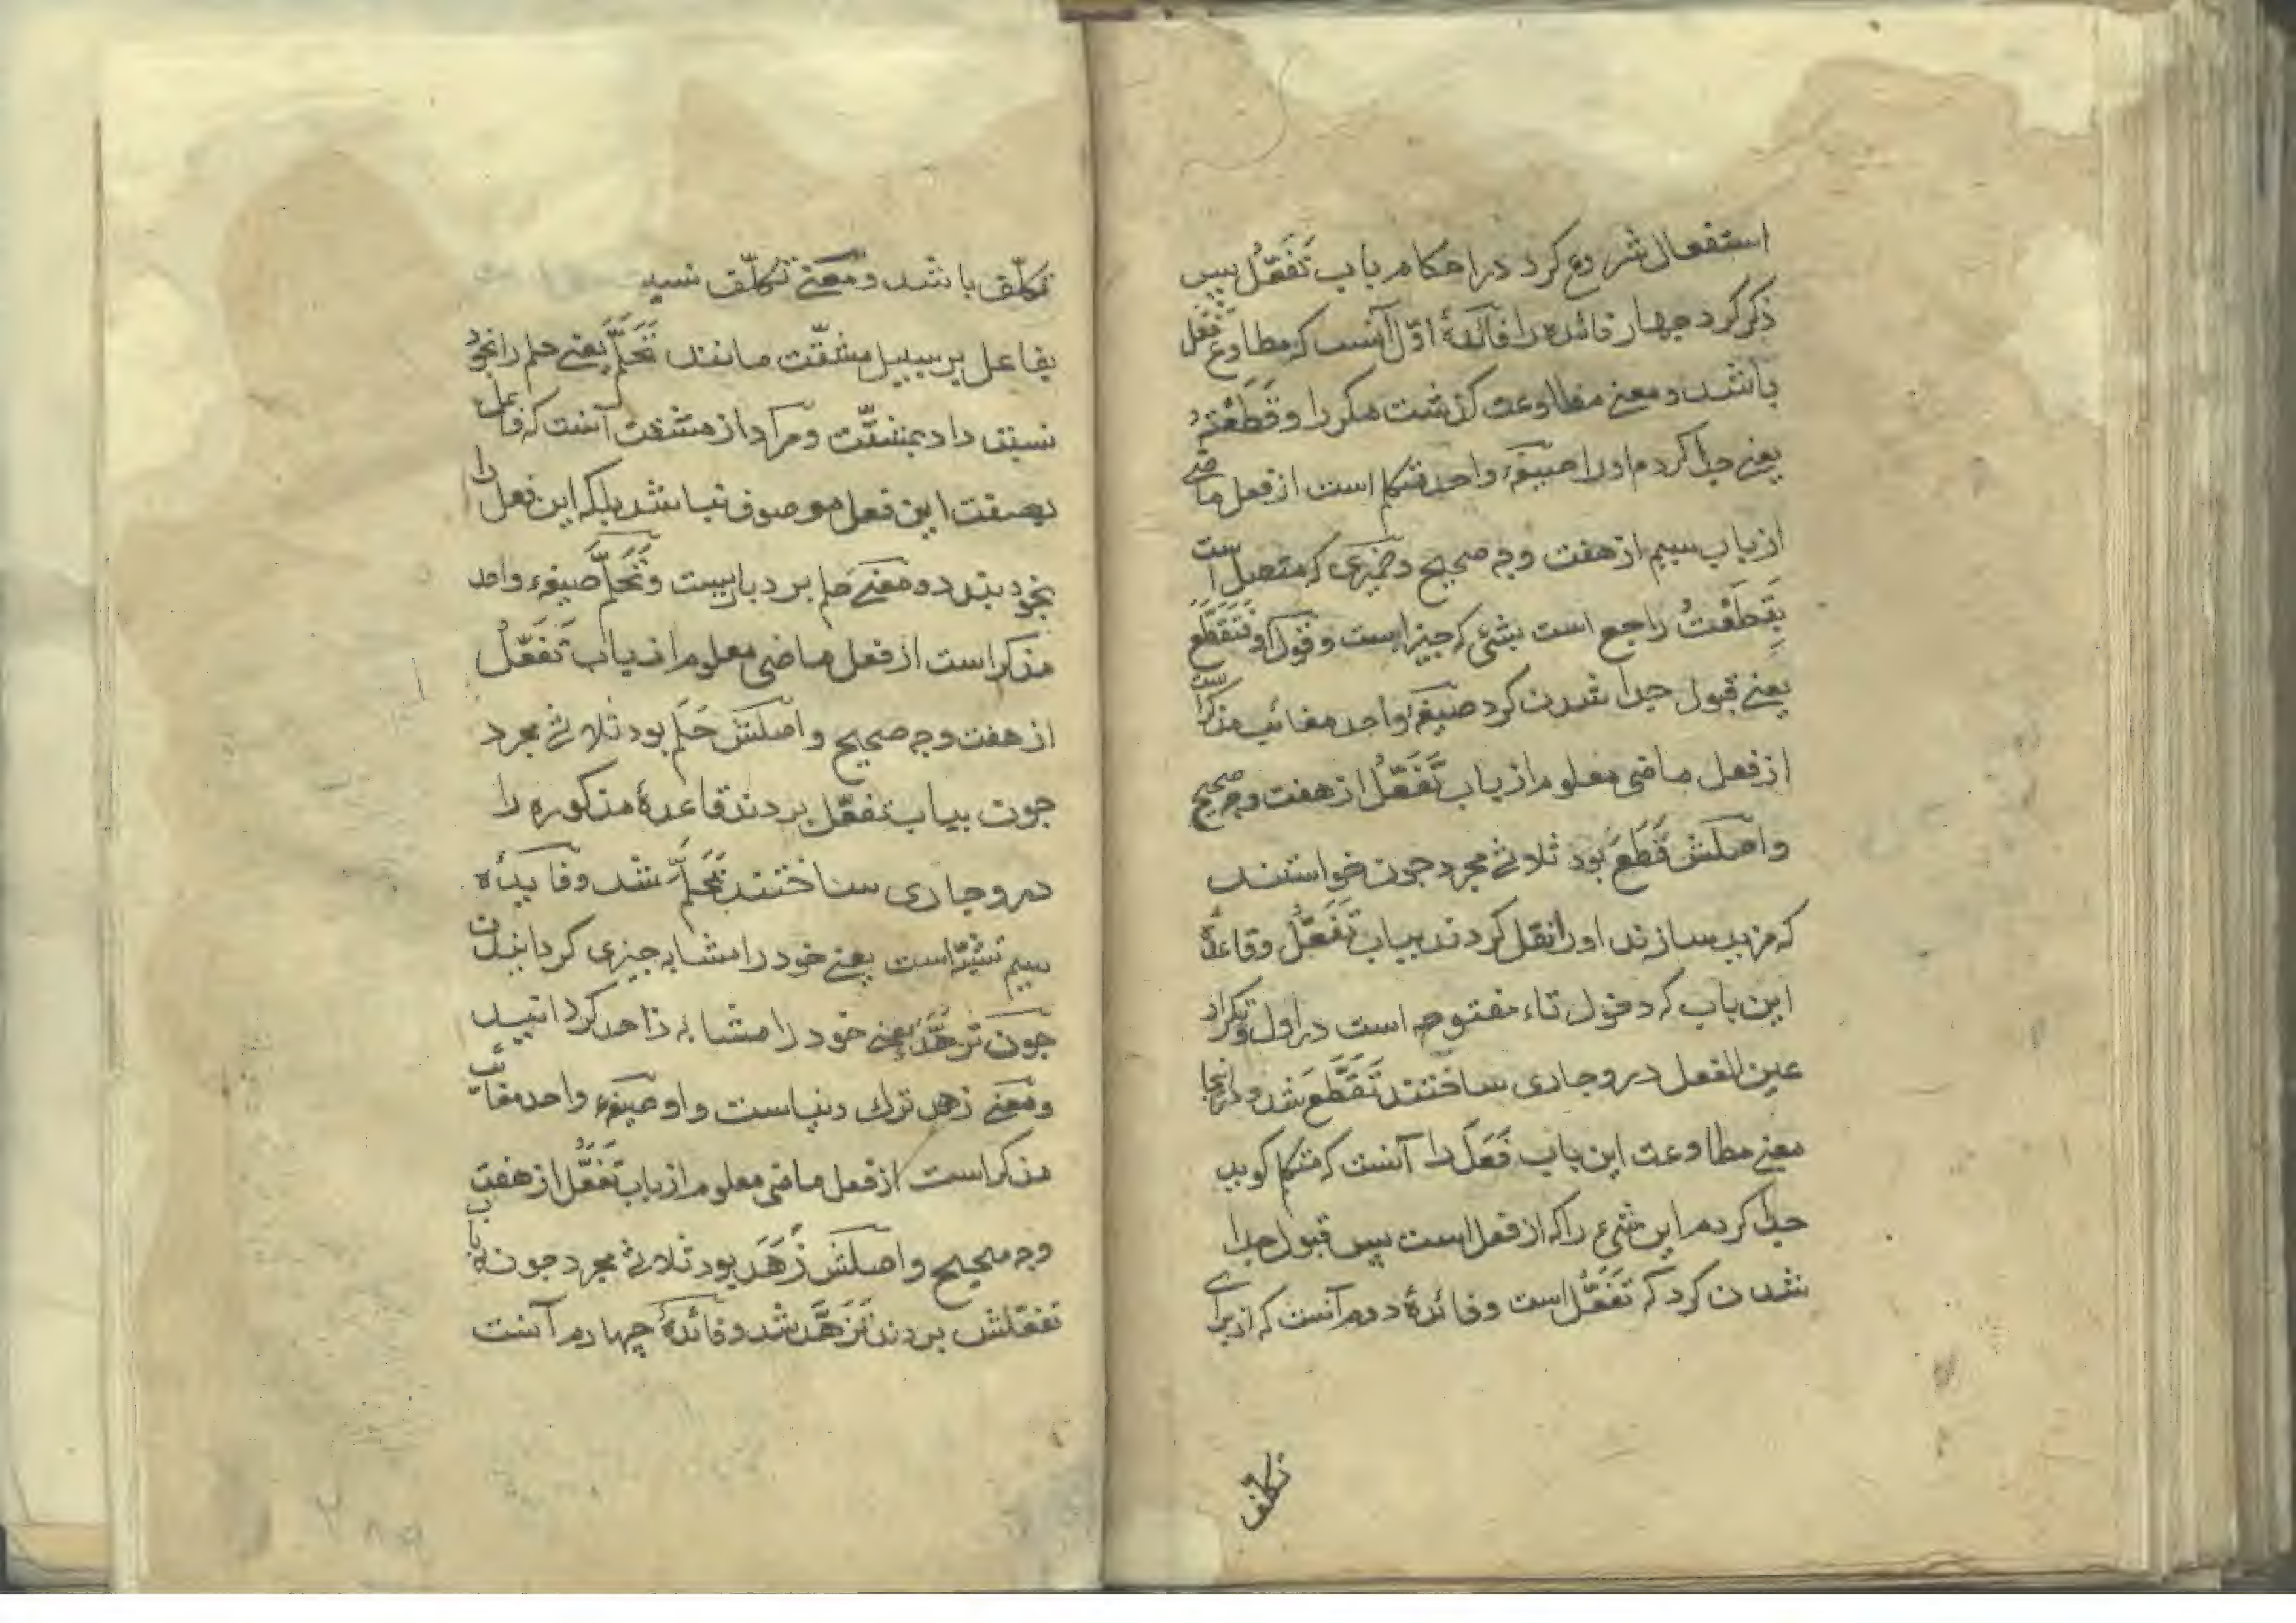 استفعال شروع کرد در احکام باب تَفَعُّلْ پس
ذکر کرد چهار فائده را فائدهٔ اوّل آنست که مطاوع فَعَّل
باشد و معنے مطاوعت کزشت مکر را و قَطَعْتُهُ
یعنے جدا کردم او را صیغهٔ واحد متکلم است از فعل ماضے
از باب سیم از هفت وجه صحیح و ضمیری که متصل است
بِقَطَعْتُ راجع است بشئ که چیز است و قول او فَتَقَطَّعَ
یعنے قبول جدا شدن کرد صیغهٔ واحد مغائب مذکر است
از فعل ماضی معلوم از باب تَفَعُّلْ از هفت وجه صحیح
و اصلش قَطَعَ بود ثلاثے مجرد جون خواستند
که مزید سازند او را نقل کردند بباب تَفَعُّلْ و قاعدهٔ
این باب که دخول تاء مفتوحه است در اول و تکرار
عین الفعل درو جاری ساختند تَقَطَّعَ شد و در اینجا
معنے مطاوعت این باب فَعَلَ را آنست که متکلم کوید
جدا کردم این شیء را که از فعل است پس قبول جدا
شدن کرد که تَفَعُّلْ است و فائدهٔ دوم آنست که از برای
تکلف
تکلّف باشد و معنے تکلّف
بفاعل بر سبیل مشقّت مانند تَحَلَّمَ یعنے حلم را بخود
نسبت داد بمشقّت و مراد از مشقت آنست که فاعل
بصفت این فعل موصوف نباشد بلکه این فعل را
بخود بندد و معنے حلم بردباریست و تَحَلَّمَ صیغهٔ واحد
مذکر است از فعل ماضی معلوم از باب تَفَعُّلْ
از هفت وجه صحیح و اصلش حَلَمَ بود ثلاثے مجرد
جون بباب تفعّل بردند قاعدهٔ مذکوره را
درو جاری ساختند تَحَلَّمَ شد و فایدهٔ
سیم تشبّه است یعنے خود را مشابه جیزی کردانیدن
جون تَزَهَّدَ یعنے خود را مشابه زاهد کردانید
و معنے زهد ترک دنیاست و او صیغهٔ واحد مغائب
مذکر است از فعل ماضی معلوم از باب تَفَعُّلْ از هفت
وجه صحیح و اصلش زَهَدَ بود ثلاثے مجرد جون بباب
تفعّلش بردند تَزَهَّدَ شد و فائدهٔ چهارم آنست